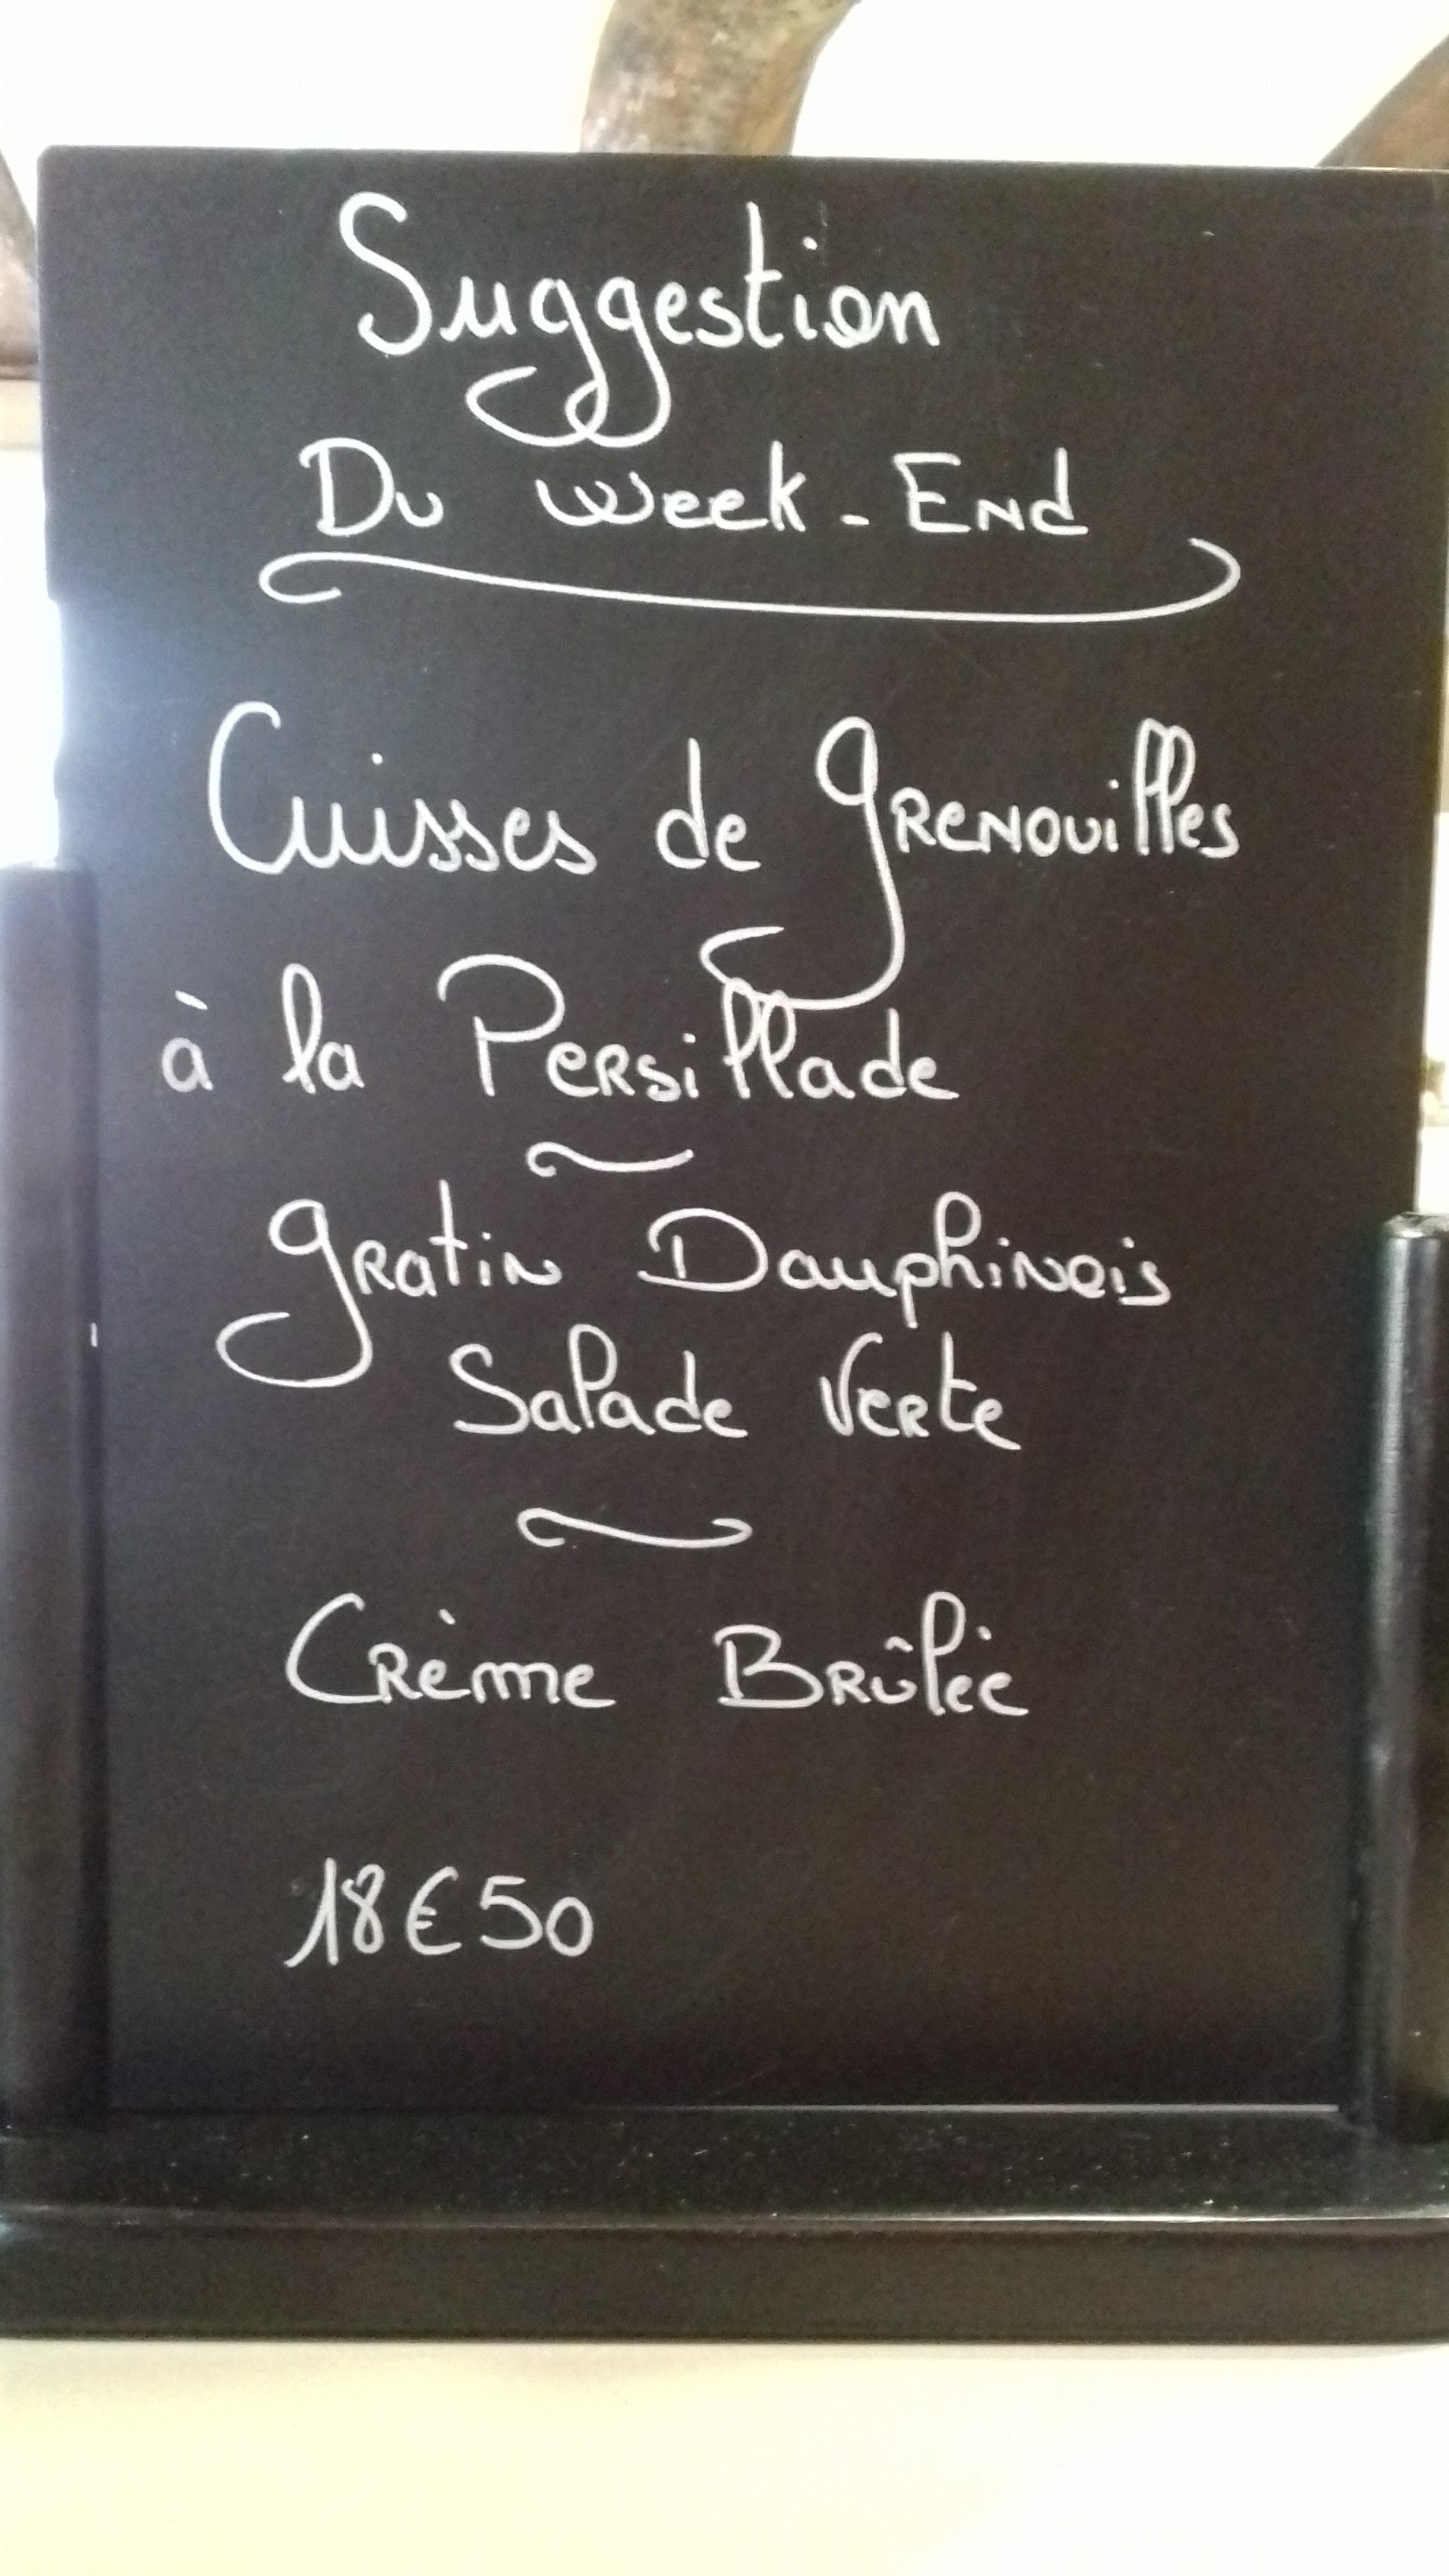 Suggestion
Du Week-End
Cuisses de Grenouilles
à la Persillade
Gratin Dauphinois
Salade Verte
Crème Brûlée
18€50